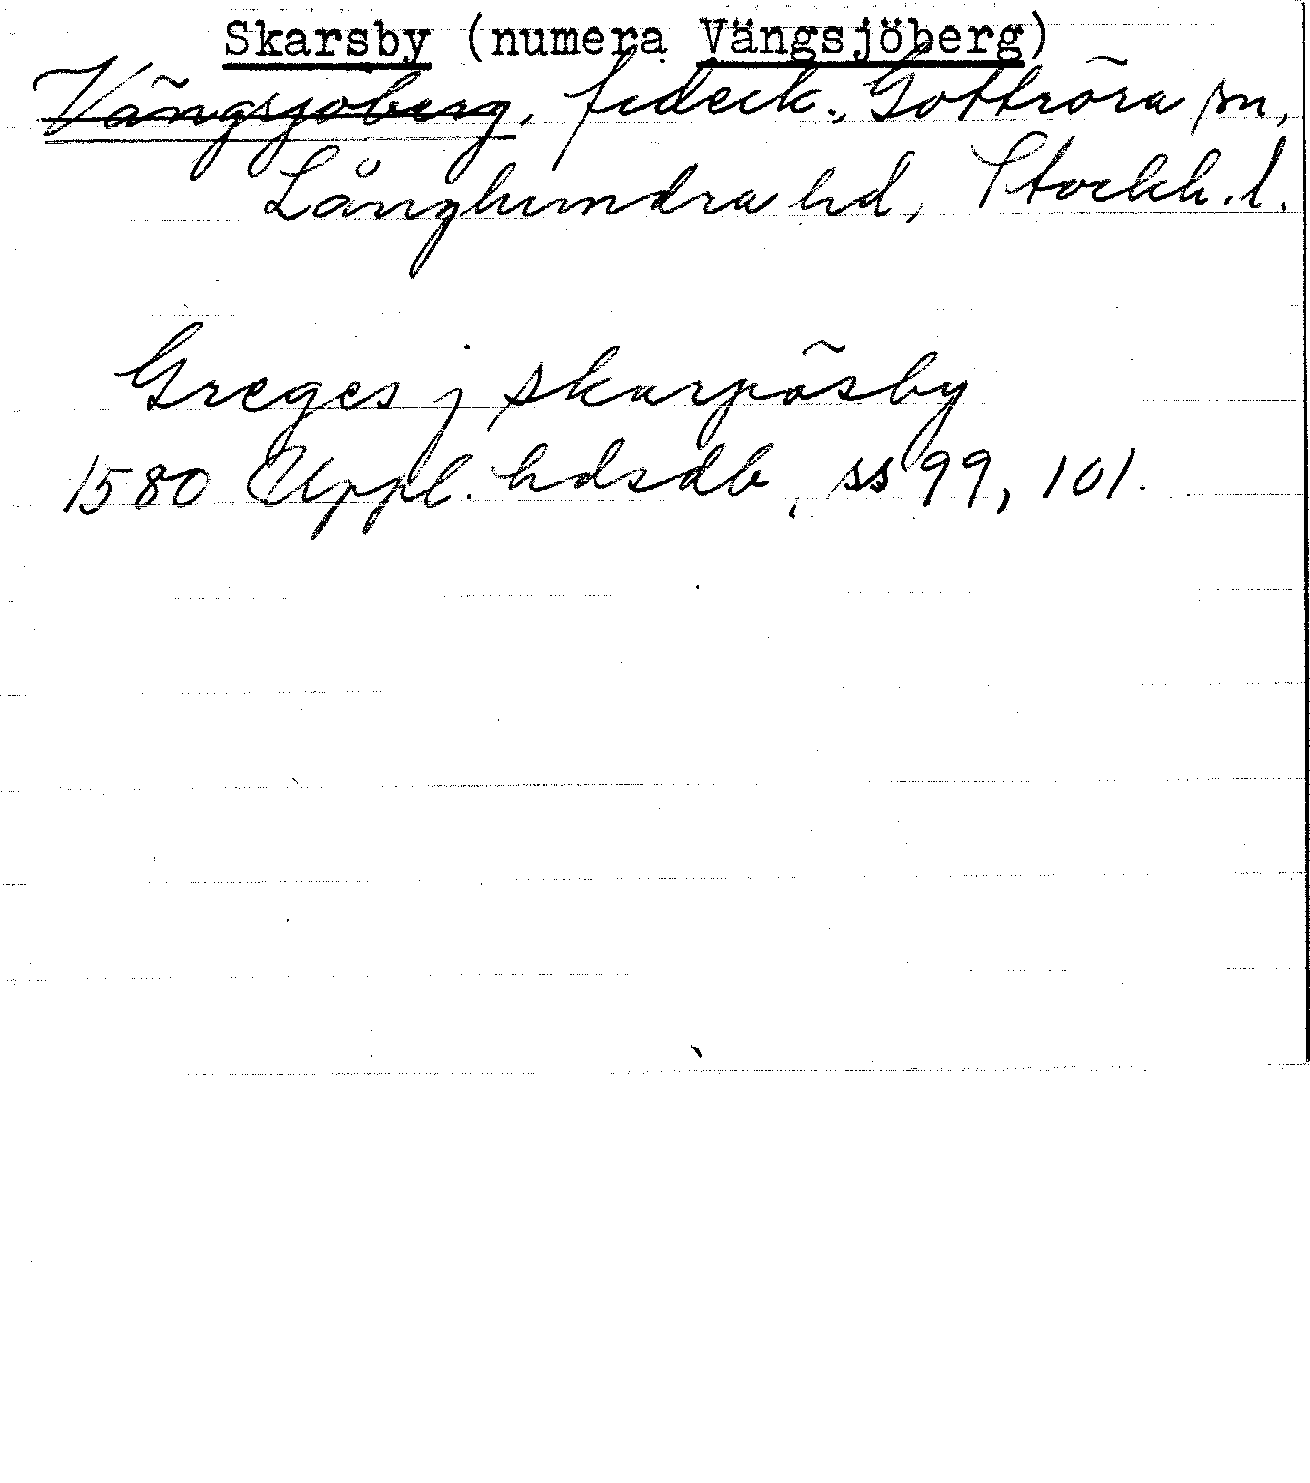 Skarsby (numera Vängsjöberg)
Vängsjöberg, fideik., Gottröra sn,
Långhundra hd, Stockh. l.
Greges j skarpösby
1580 Uppl. hdsdb, ss 99, 101.